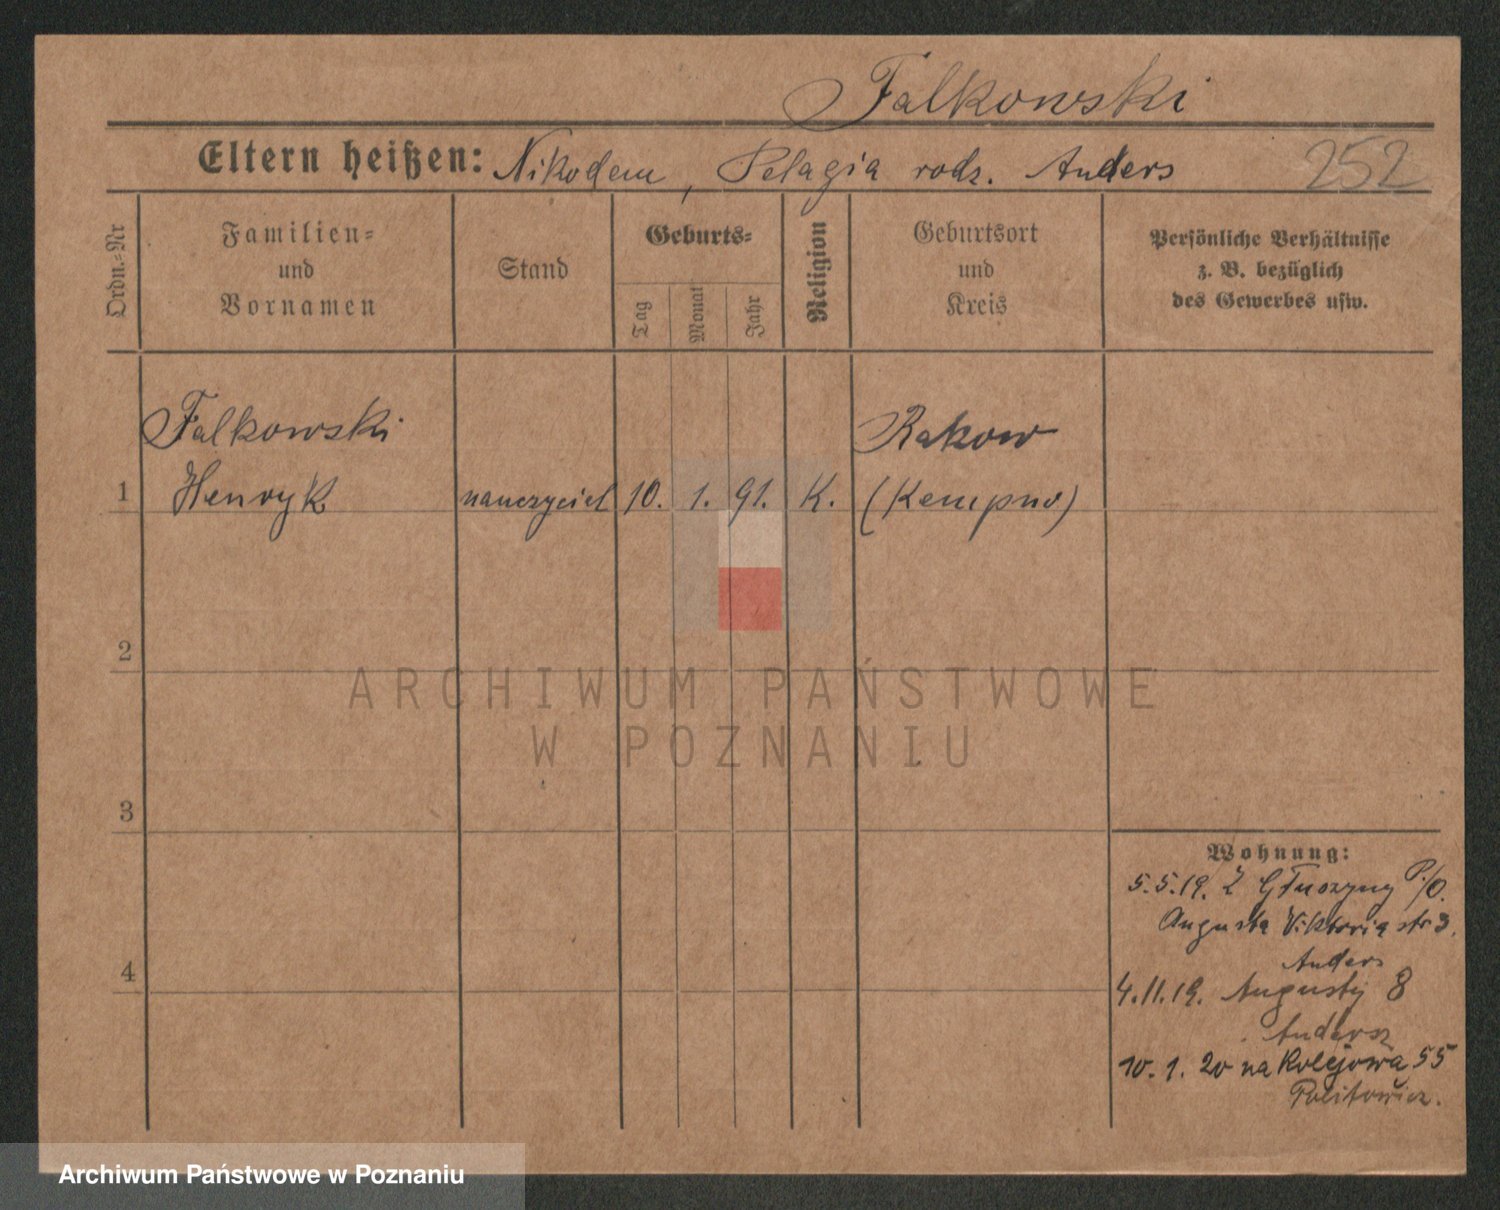 Falkowski
Eltern heißen: Nikodem, Pelagia rodz. Anders 252
Ordn.-Nr
Familien-
und
Vornamen
Stand
Geburts-
Tag
Monat
Jahr
Religion
Geburtsort
und
Kreis
Persönliche Verhältnisse
z. B. bezüglich
des Gewerbes usw.
Falkowski Rakow
1 Henryk nauczyciel 10. 1. 91. K. (Kempno)
2
ARCHIWUM PAŃSTWOWE
W POZNANIU
3
Wohnung:
5.5.19. Z Głuszyny P./O.
Augusta Viktoria str 3.
Anders
4
4.11.19. Augusty 8
Andersz
10. 1. 20 na Kolejowa 55
Politowicz.
Archiwum Państwowe w Poznaniu